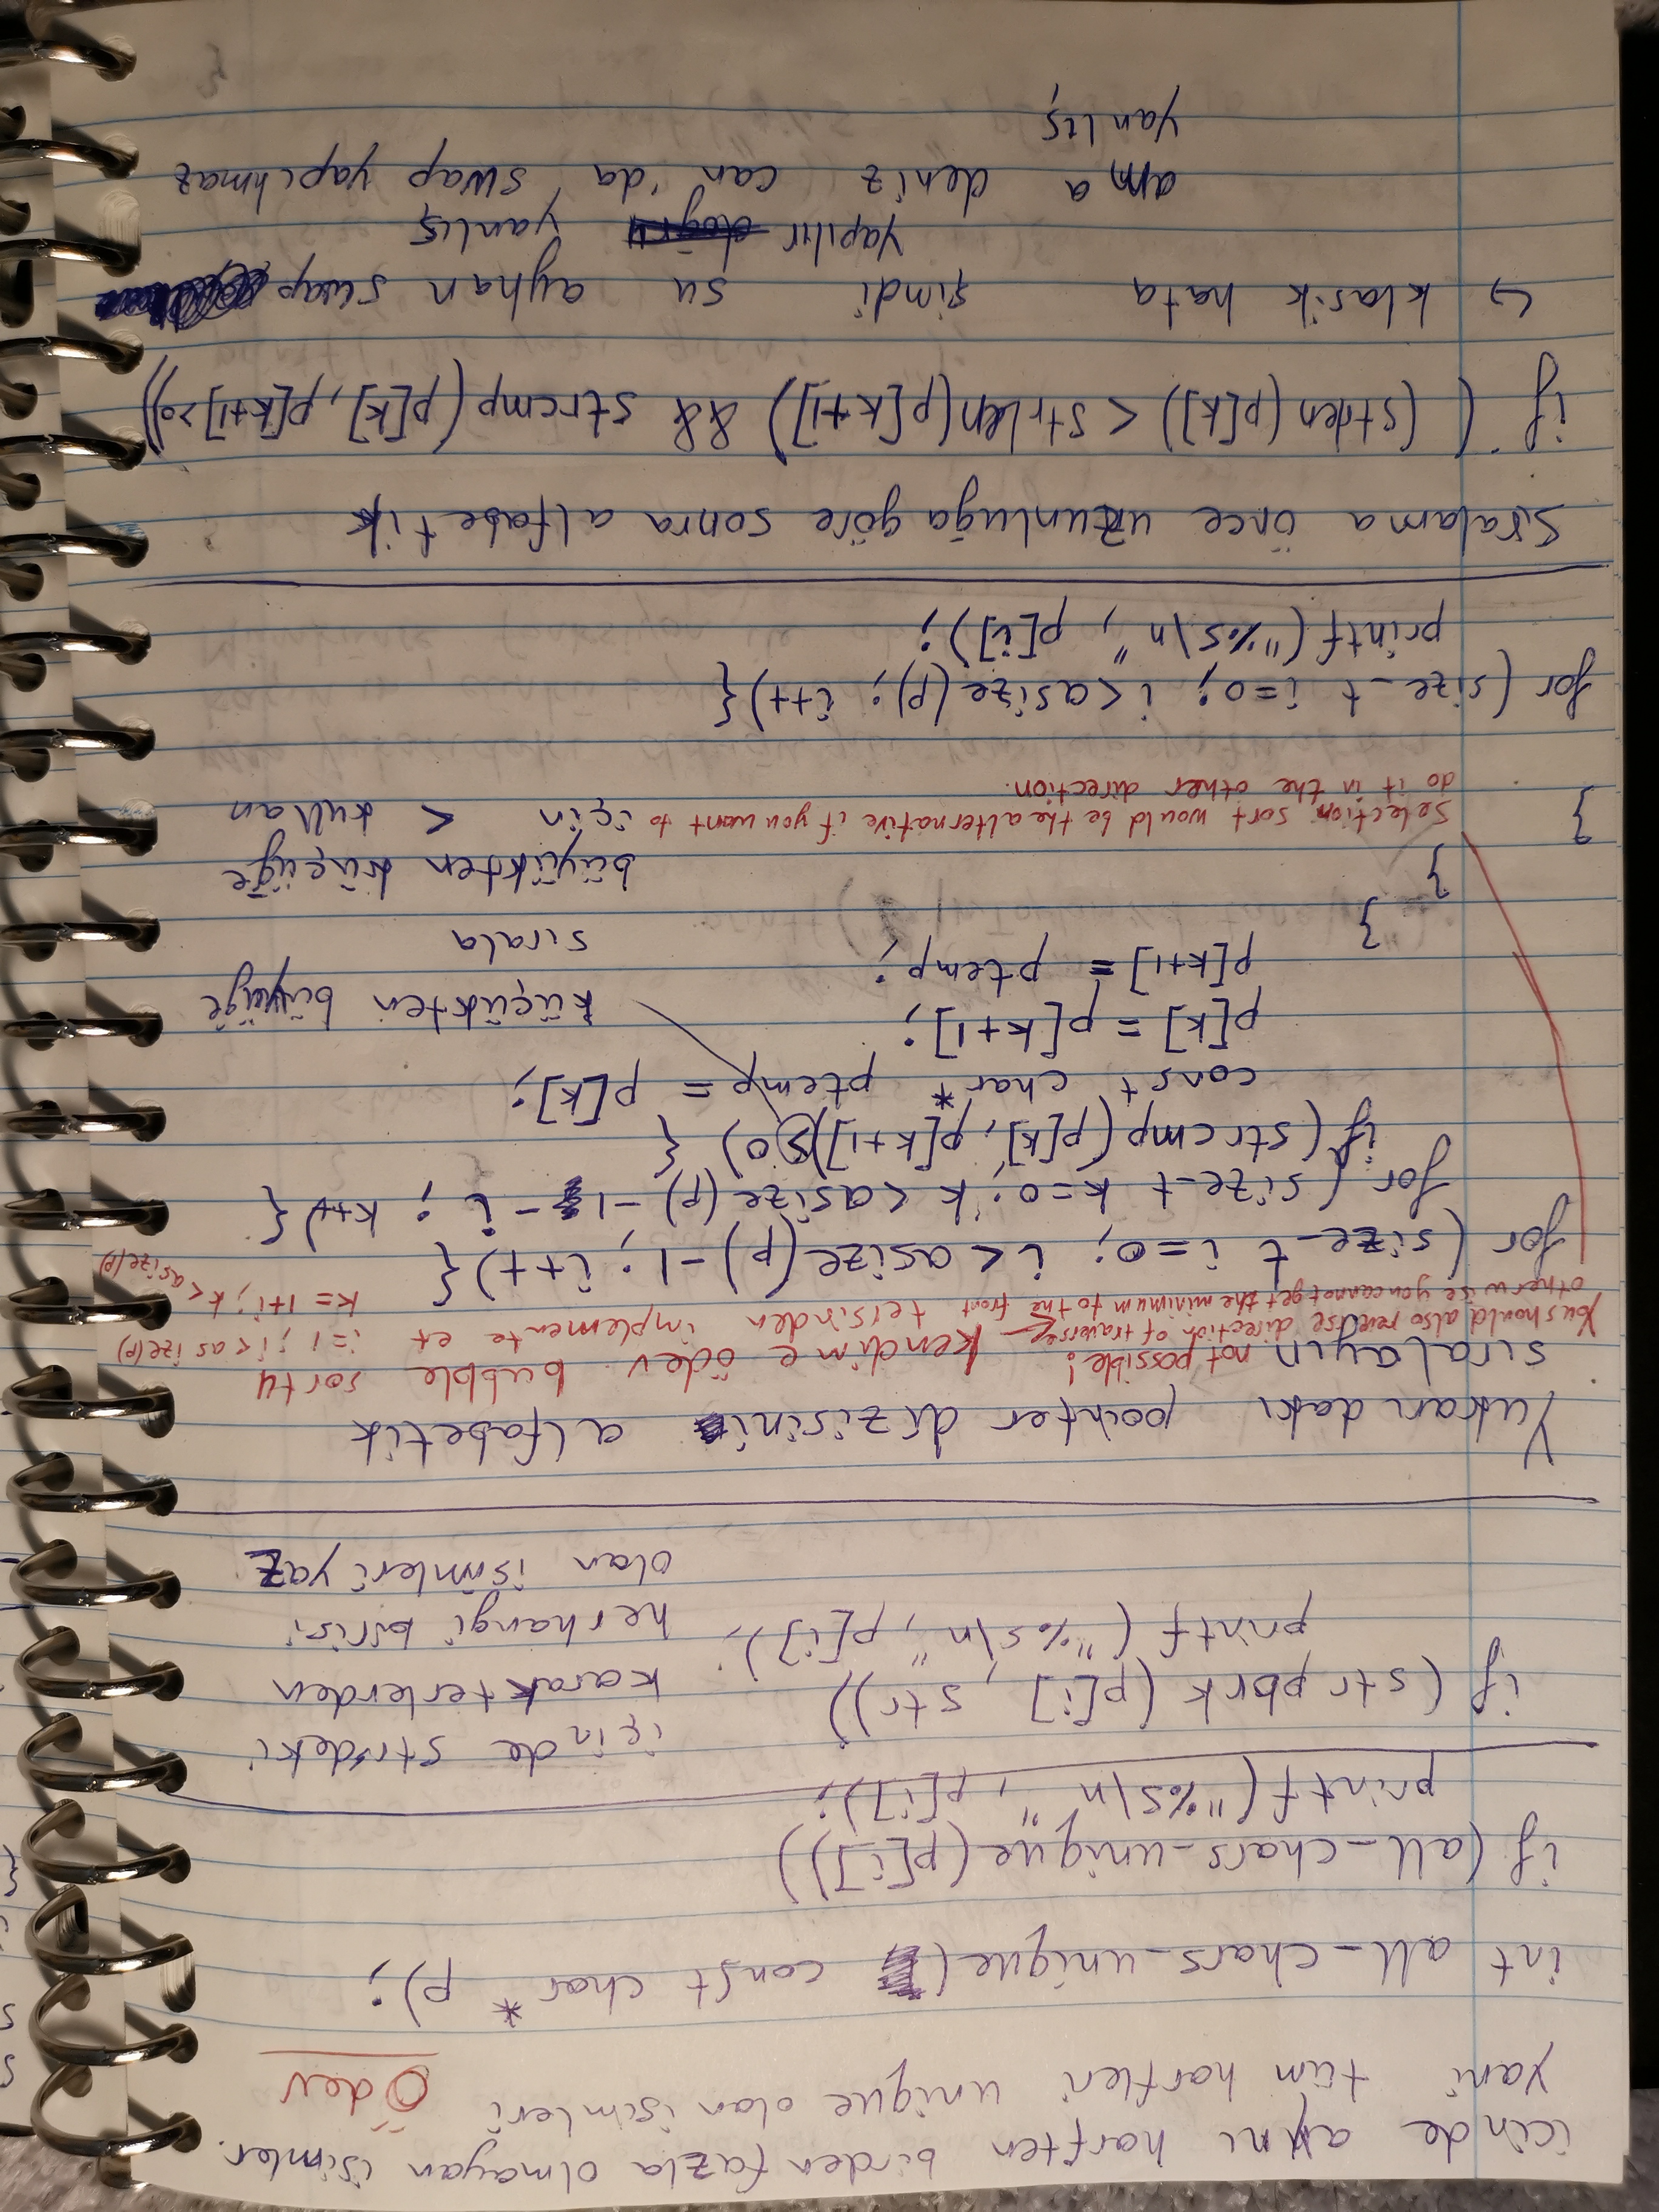 icinde aynı harften birden fazla olmayan isimler.
yani tüm harfleri unique olan isimleri
Ödev
int all_chars_unique( const char* p);
if (all_chars_unique(p[i]))
printf("%s\n", p[i]);
if (strpbrk (p[i], str))
printf ("%s\n", p[i]);
içinde str'deki
karakterlerden
herhangi birisi
olan isimleri yaz
Yukarıdaki pointer dizisini alfabetik
sıralayın not possible! ← kendime ödev bubble sortu
tersinden implemente et
i=1 ; i< asize(p)
k= 1+i ; k< asize(p)
You should also reverse direction of traverse
otherwise you cannot get the minimum to the front
for (size_t i=0; i< asize(p)-1; i++){
for (size_t k=0; k <asize(p) -1 -i ; k++) {
if (strcmp(p[k], p[k+1])>0) {
const char* ptemp = p[k];
p[k] = p[k+1];
p[k+1]= ptemp;
}
}
}
küçükten büyüğe
sırala
büyükten küçüğe
için < kullan
selection sort would be the alternative if you want to
do it in the other direction.
for (size_t i=0; i<asize(p); i++){
printf("%s\n", p[i]);
Sıralama önce uzunluğa göre sonra alfabetik
if ( (strlen(p[k]) < strlen(p[k+1]) && strcmp(p[k], p[k+1]>0))
↪ klasik hata şimdi su ayhan swap
yapılır doğru yanlış
ama deniz can'da swap yapılmaz
yanlış